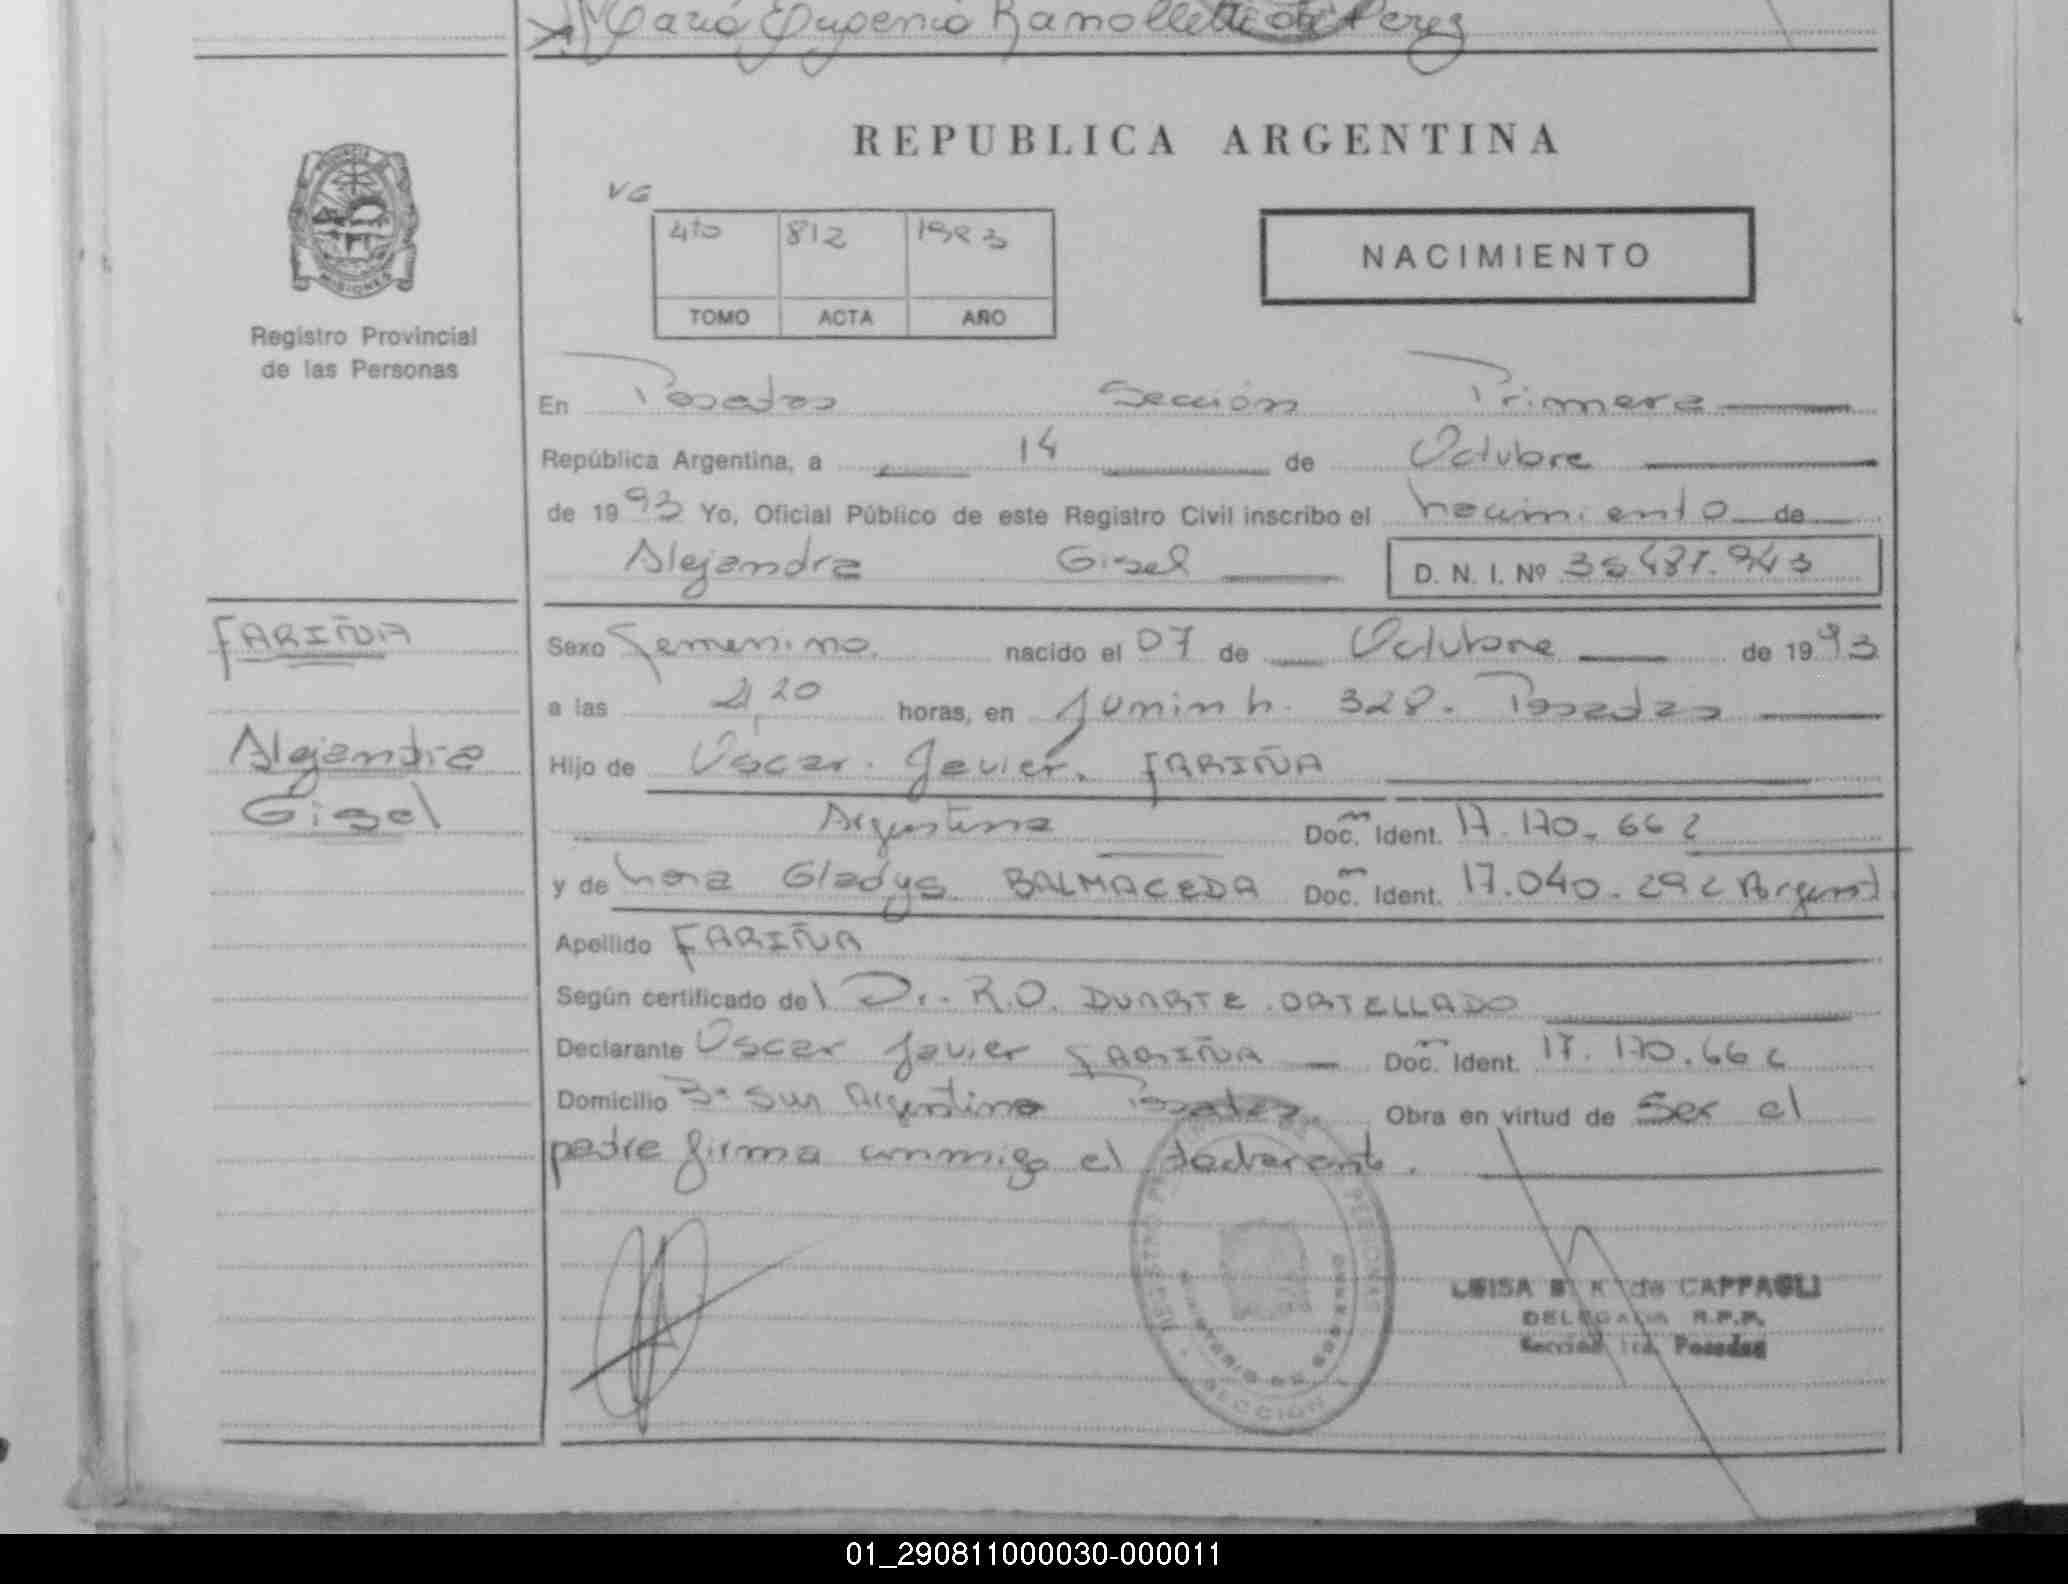 María Eugenia Ramolletti de Perez
REPUBLICA ARGENTINA
VG
4to 812 1993
TOMO ACTA AÑO
NACIMIENTO
PROVINCIA DE MISIONES
Registro Provincial
de las Personas
En Posadas Sección Primera
República Argentina, a 14 de Octubre
de 1993 Yo, Oficial Público de este Registro Civil inscribo el nacimiento de
Alejandra Gisel D. N. I. Nº
FARIÑA
Alejandra
Gisel
Sexo Femenino. nacido el 07 de Octubre de 1993
a las horas, en Junin n. 328. Posadas
Hijo de Oscar Javier. FARIÑA
Argentina Doc. Ident. 17.170.662
y de Gladys BALMACEDA Doc. Ident. 17.040.292 Argent
Apellido FARIÑA
Según certificado del Dr. R.O. DUARTE ORTELLADO
Declarante Oscar Javier FARIÑA Doc. Ident. 17.170.662
Domicilio Sur Argentino Posadas. Obra en virtud de Ser el
padre firma conmigo el declarante.
REGISTRO PERSONAS
MINISTERIO DE GOBIERNO
SECCION
LUISA B. K. de CAPPAGLI
DELEGADA R.P.P.
Sección 1ra. Posadas
01_290811000030-000011